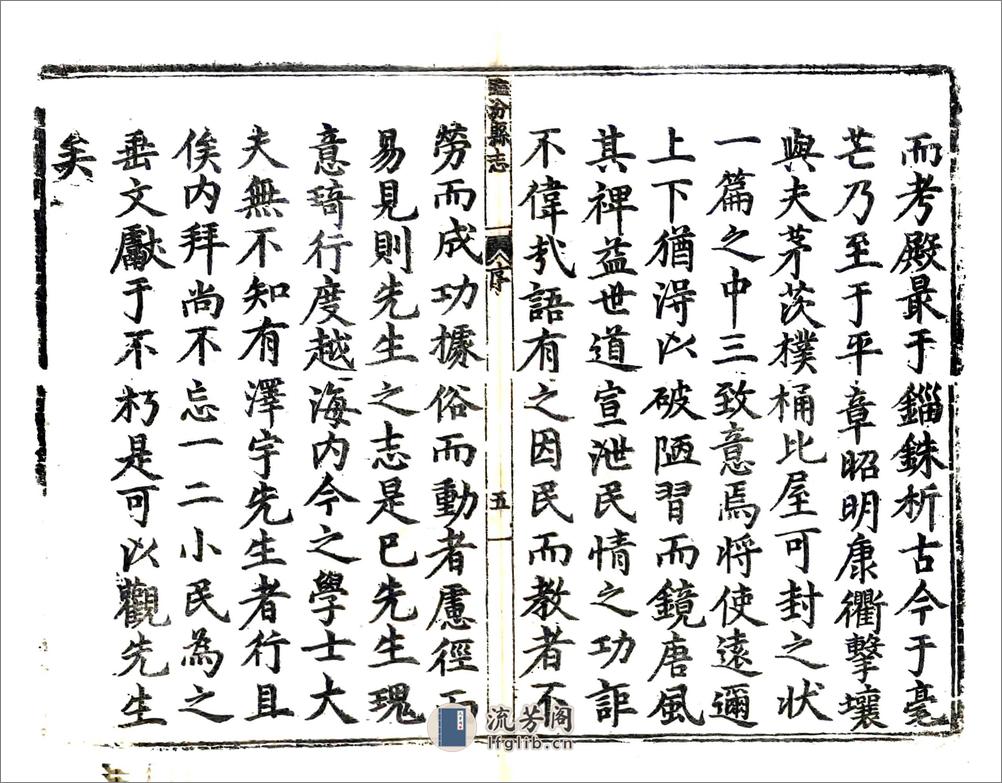 而考殿最于錙銖析古今于毫
芒乃至于平章昭明康衢擊壤
與夫茅茨樸桷比屋可封之狀
一篇之中三致意焉將使遠邇
上下猶淂以破陋習而鏡唐風
其裨益世道宣泄民情之功詎
不偉㢤語有之因民而教者不
汾縣志
序
五
勞而成功據俗而動者慮徑而
易見則先生之志是已先生瑰
意琦行度越海内今之學士大
夫無不知有澤宇先生者行且
俟内拜尚不忘一二小民為之
垂文獻于不朽是可以觀先生
矣
流芳阁
lfglib.cn